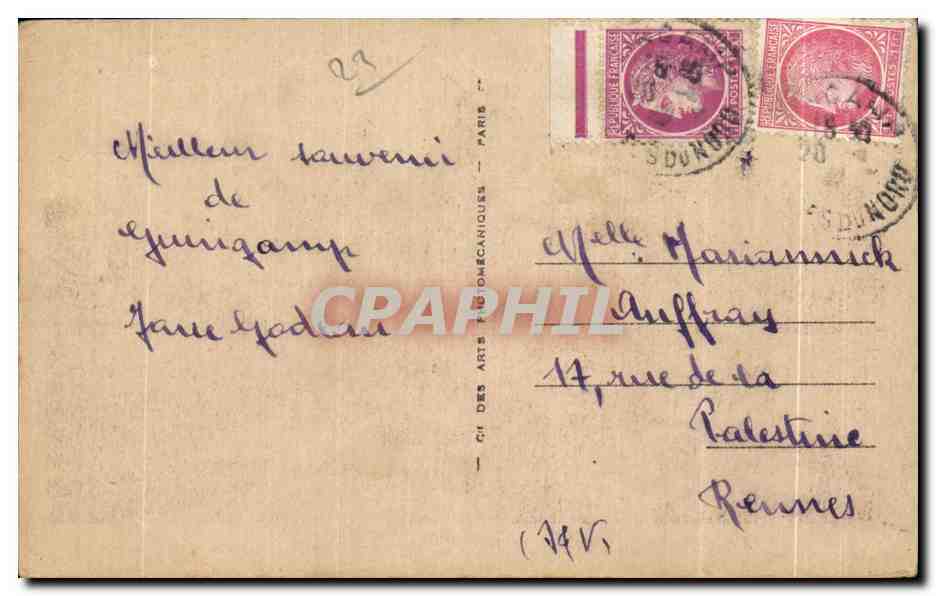 23
Meilleur souvenir
de
Guingamp
Jane Godeau
Cie DES ARTS PHOTOMECANIQUES — PARIS
REPUBLIQUE FRANÇAISE
POSTES
REPUBLIQUE FRANÇAISE
POSTES 1 FR
S DU NORD
S DU NORD
Melle Mariannick
Auffray
17, rue de la
Palestine
Rennes
(I&V)
CPARPHIL